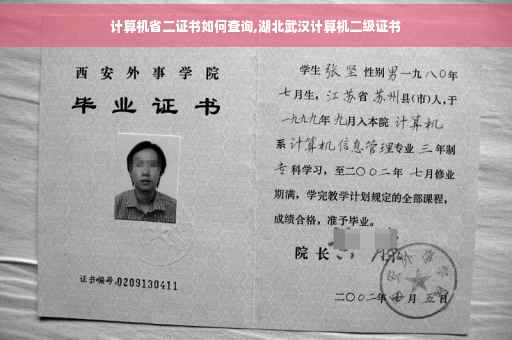 计算机省二证书如何查询,湖北武汉计算机二级证书
西安外事学院
毕业证书
证书编号:0209130411
学生 张坚 性别 男 一九八〇年
七月生，江苏省 苏州县(市)人,于
一九九九年 九月入本院 计算机
系 计算机信息管理专业 三 年制
专科学习，至二〇〇二年 七月修业
期满，学完教学计划规定的全部课程，
成绩合格，准予毕业。
院长
二〇〇二年 月 五日